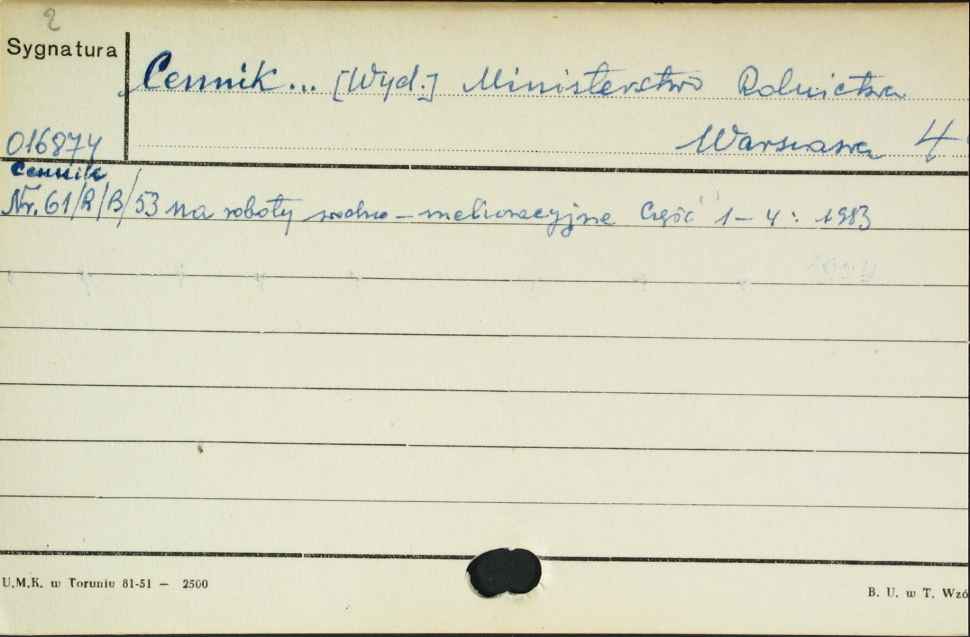 2
Sygnatura
Cennik... [Wyd.] Ministerstwo Rolnictwa
Warszawa 4
016874
Cennik
Nr. 61/R/B/53 na roboty wodno-melioracyjne Część 1-4: 1953
U.M.K. w Toruniu 81-51 — 2500
B. U. w T. Wzó